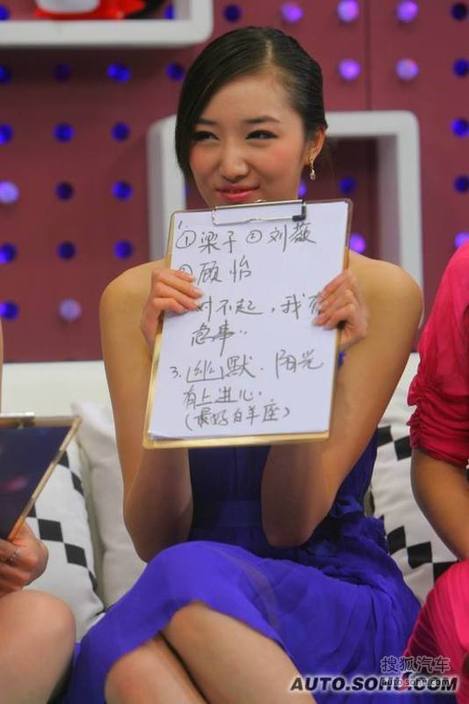 ①梁子 ② 刘薇
顾怡
对不起，我有
急事..
3. 幽默. 阳光
有上进心.
(最好白羊座)
搜狐汽车
auto.sohu.com
AUTO.SOHU.COM